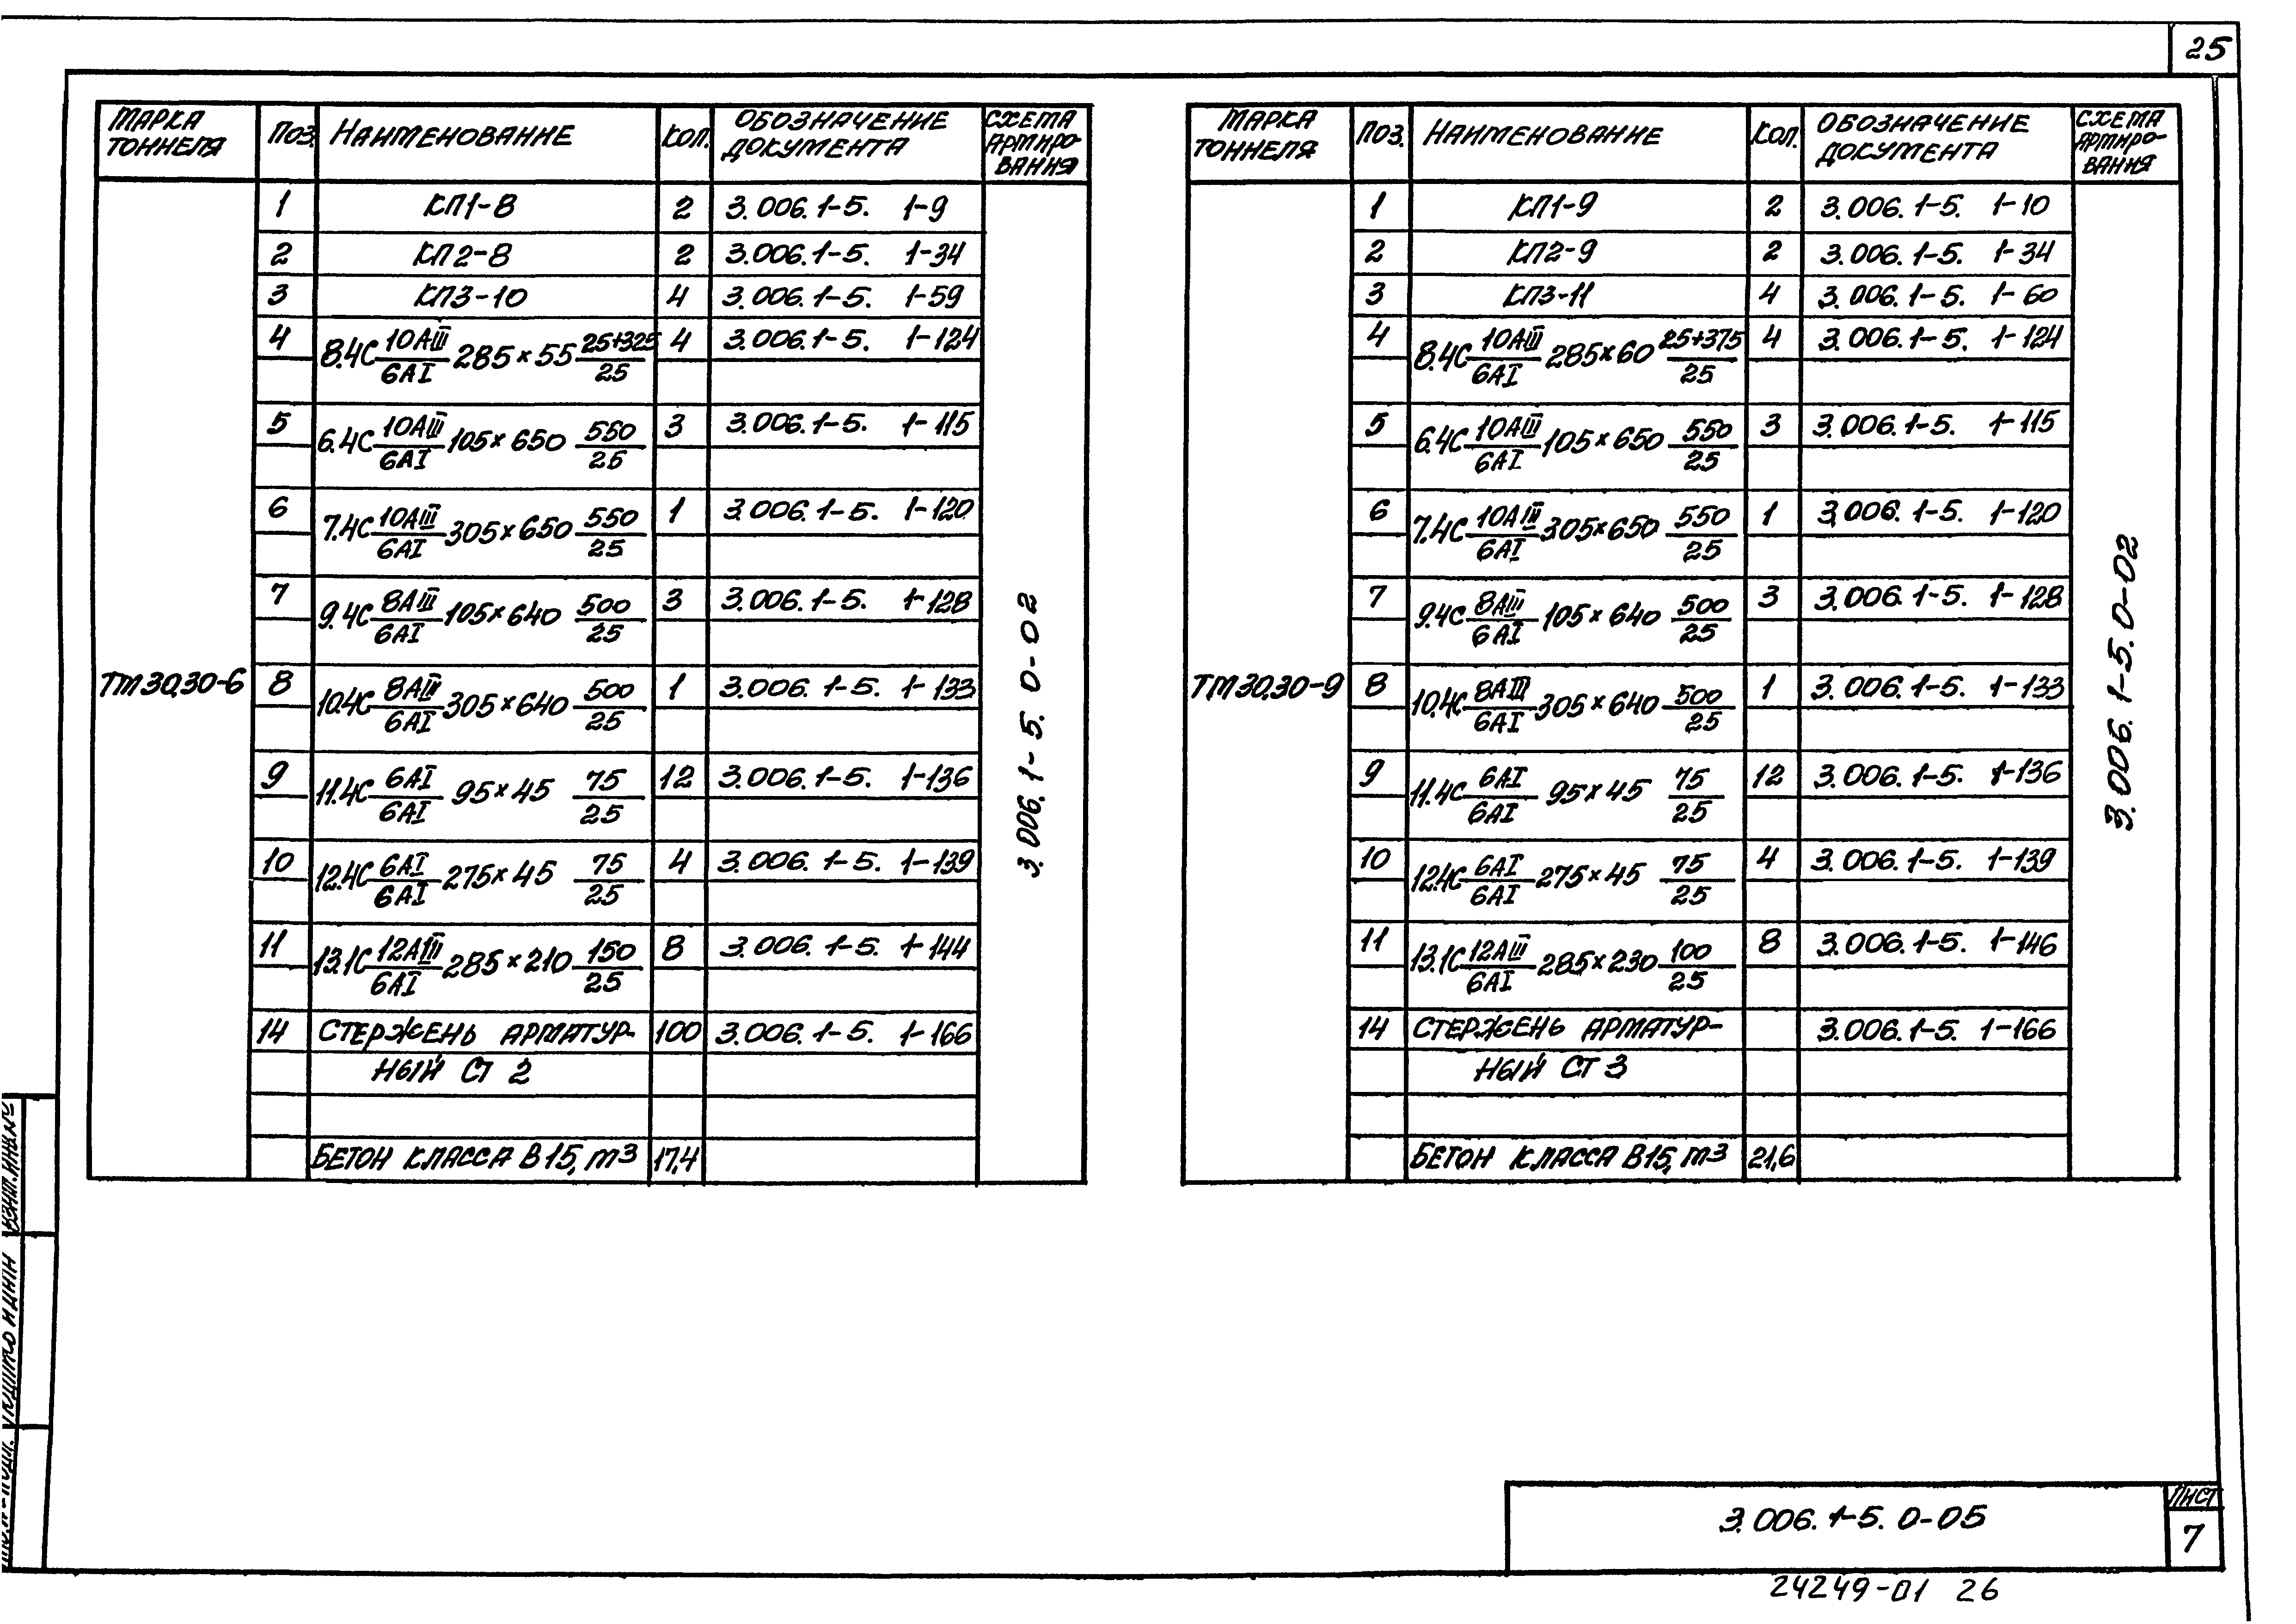 25
МАРКА ТОННЕЛЯ ПОЗ. НАИМЕНОВАНИЕ КОЛ. ОБОЗНАЧЕНИЕ ДОКУМЕНТА СХЕМА АРМИРО-ВАНИЯ
ТМ30.30-6
1 КП1-8 2 3.006.1-5. 1-9
2 КП2-8 2 3.006.1-5. 1-34
3 КП3-10 4 3.006.1-5. 1-59
4 8.4С 10АIII/6АI 285×55 25+325/25 4 3.006.1-5. 1-124
5 6.4С 10АIII/6АI 105×650 550/25 3 3.006.1-5. 1-115
6 7.4С 10АIII/6АI 305×650 550/25 1 3.006.1-5. 1-120
7 9.4С 8АIII/6АI 105×640 500/25 3 3.006.1-5. 1-128
8 10.4С 8АIII/6АI 305×640 500/25 1 3.006.1-5. 1-133
9 11.4С 6АI/6АI 95×45 75/25 12 3.006.1-5. 1-136
10 12.4С 6АI/6АI 275×45 75/25 4 3.006.1-5. 1-139
11 13.1С 12АIII/6АI 285×210 150/25 8 3.006.1-5. 1-144
14 СТЕРЖЕНЬ АРМАТУР- 100 3.006.1-5. 1-166
НЫЙ СТ 2
БЕТОН КЛАССА В15, м3 17,4
3.006.1-5.0-02
МАРКА ТОННЕЛЯ ПОЗ. НАИМЕНОВАНИЕ КОЛ. ОБОЗНАЧЕНИЕ ДОКУМЕНТА СХЕМА АРМИРО-ВАНИЯ
ТМ30.30-9
1 КП1-9 2 3.006.1-5. 1-10
2 КП2-9 2 3.006.1-5. 1-34
3 КП3-11 4 3.006.1-5. 1-60
4 8.4С 10АIII/6АI 285×60 25+375/25 4 3.006.1-5. 1-124
5 6.4С 10АIII/6АI 105×650 550/25 3 3.006.1-5. 1-115
6 7.4С 10АIII/6АI 305×650 550/25 1 3.006.1-5. 1-120
7 9.4С 8АIII/6АI 105×640 500/25 3 3.006.1-5. 1-128
8 10.4С 8АIII/6АI 305×640 500/25 1 3.006.1-5. 1-133
9 11.4С 6АI/6АI 95×45 75/25 12 3.006.1-5. 1-136
10 12.4С 6АI/6АI 275×45 75/25 4 3.006.1-5. 1-139
11 13.1С 12АIII/6АI 285×230 100/25 8 3.006.1-5. 1-146
14 СТЕРЖЕНЬ АРМАТУР- 3.006.1-5. 1-166
НЫЙ СТ 3
БЕТОН КЛАССА В15, м3 21,6
3.006.1-5.0-02
ВЗАМ.ИНВ.№
3.006.1-5.0-05
ЛИСТ
7
24249-01 26